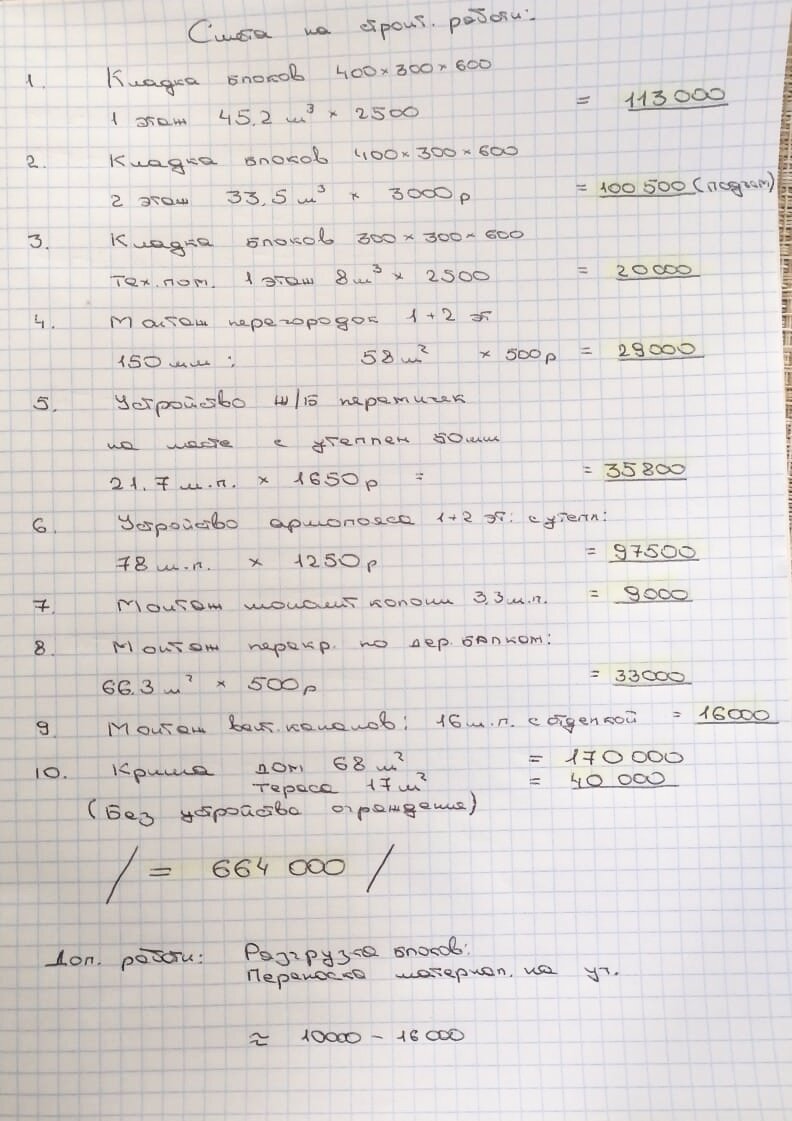 Смета на строит. работы:
1. Кладка блоков 400×300×600
1 этаж 45,2 м³ × 2500 = 113 000
2. Кладка блоков 400×300×600
2 этаж 33,5 м³ × 3000р = 100 500 (подгон)
3. Кладка блоков 300×300×600
тех.пом. 1 этаж 8м³ × 2500 = 20000
4. Монтаж перегородок 1+2 эт
150 мм: 58 м² × 500р = 29000
5. Устройство ж/б перемычек
на месте с утеплен 50мм
21.7 м.п. × 1650р = = 35800
6. Устройство армопояса 1+2 эт: с утепл:
78 м.п. × 1250р = 97500
7. Монтаж монолит колонн 3,3 м.п. = 9000
8. Монтаж перекр. по дер. балком:
66.3 м² × 500р = 33000
9 Монтаж вент.каналов: 16 м.п. с отделкой = 16000
10. Крыша дом 68 м² = 170 000
тераса 17 м² = 40 000
(Без устройства ограждения)
/ = 664 000 /
Доп. работы: Разгрузка блоков:
Переноска материал. на уч.
≈ 10000 – 16 000